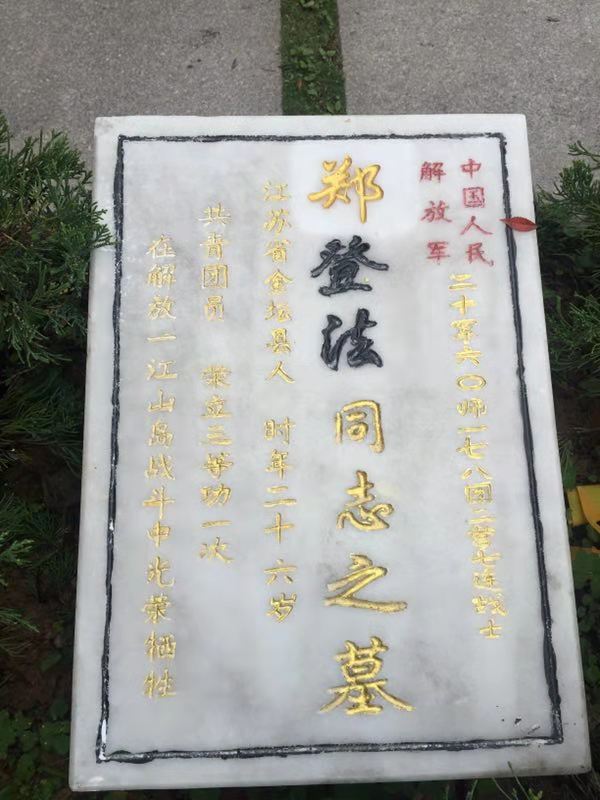 中国人民
解放军
二十军六〇师一七八团二营七连战士
郑登法同志之墓
江苏省金坛县人 时年二十六岁
共青团员 荣立三等功一次
在解放一江山岛战斗中光荣牺牲